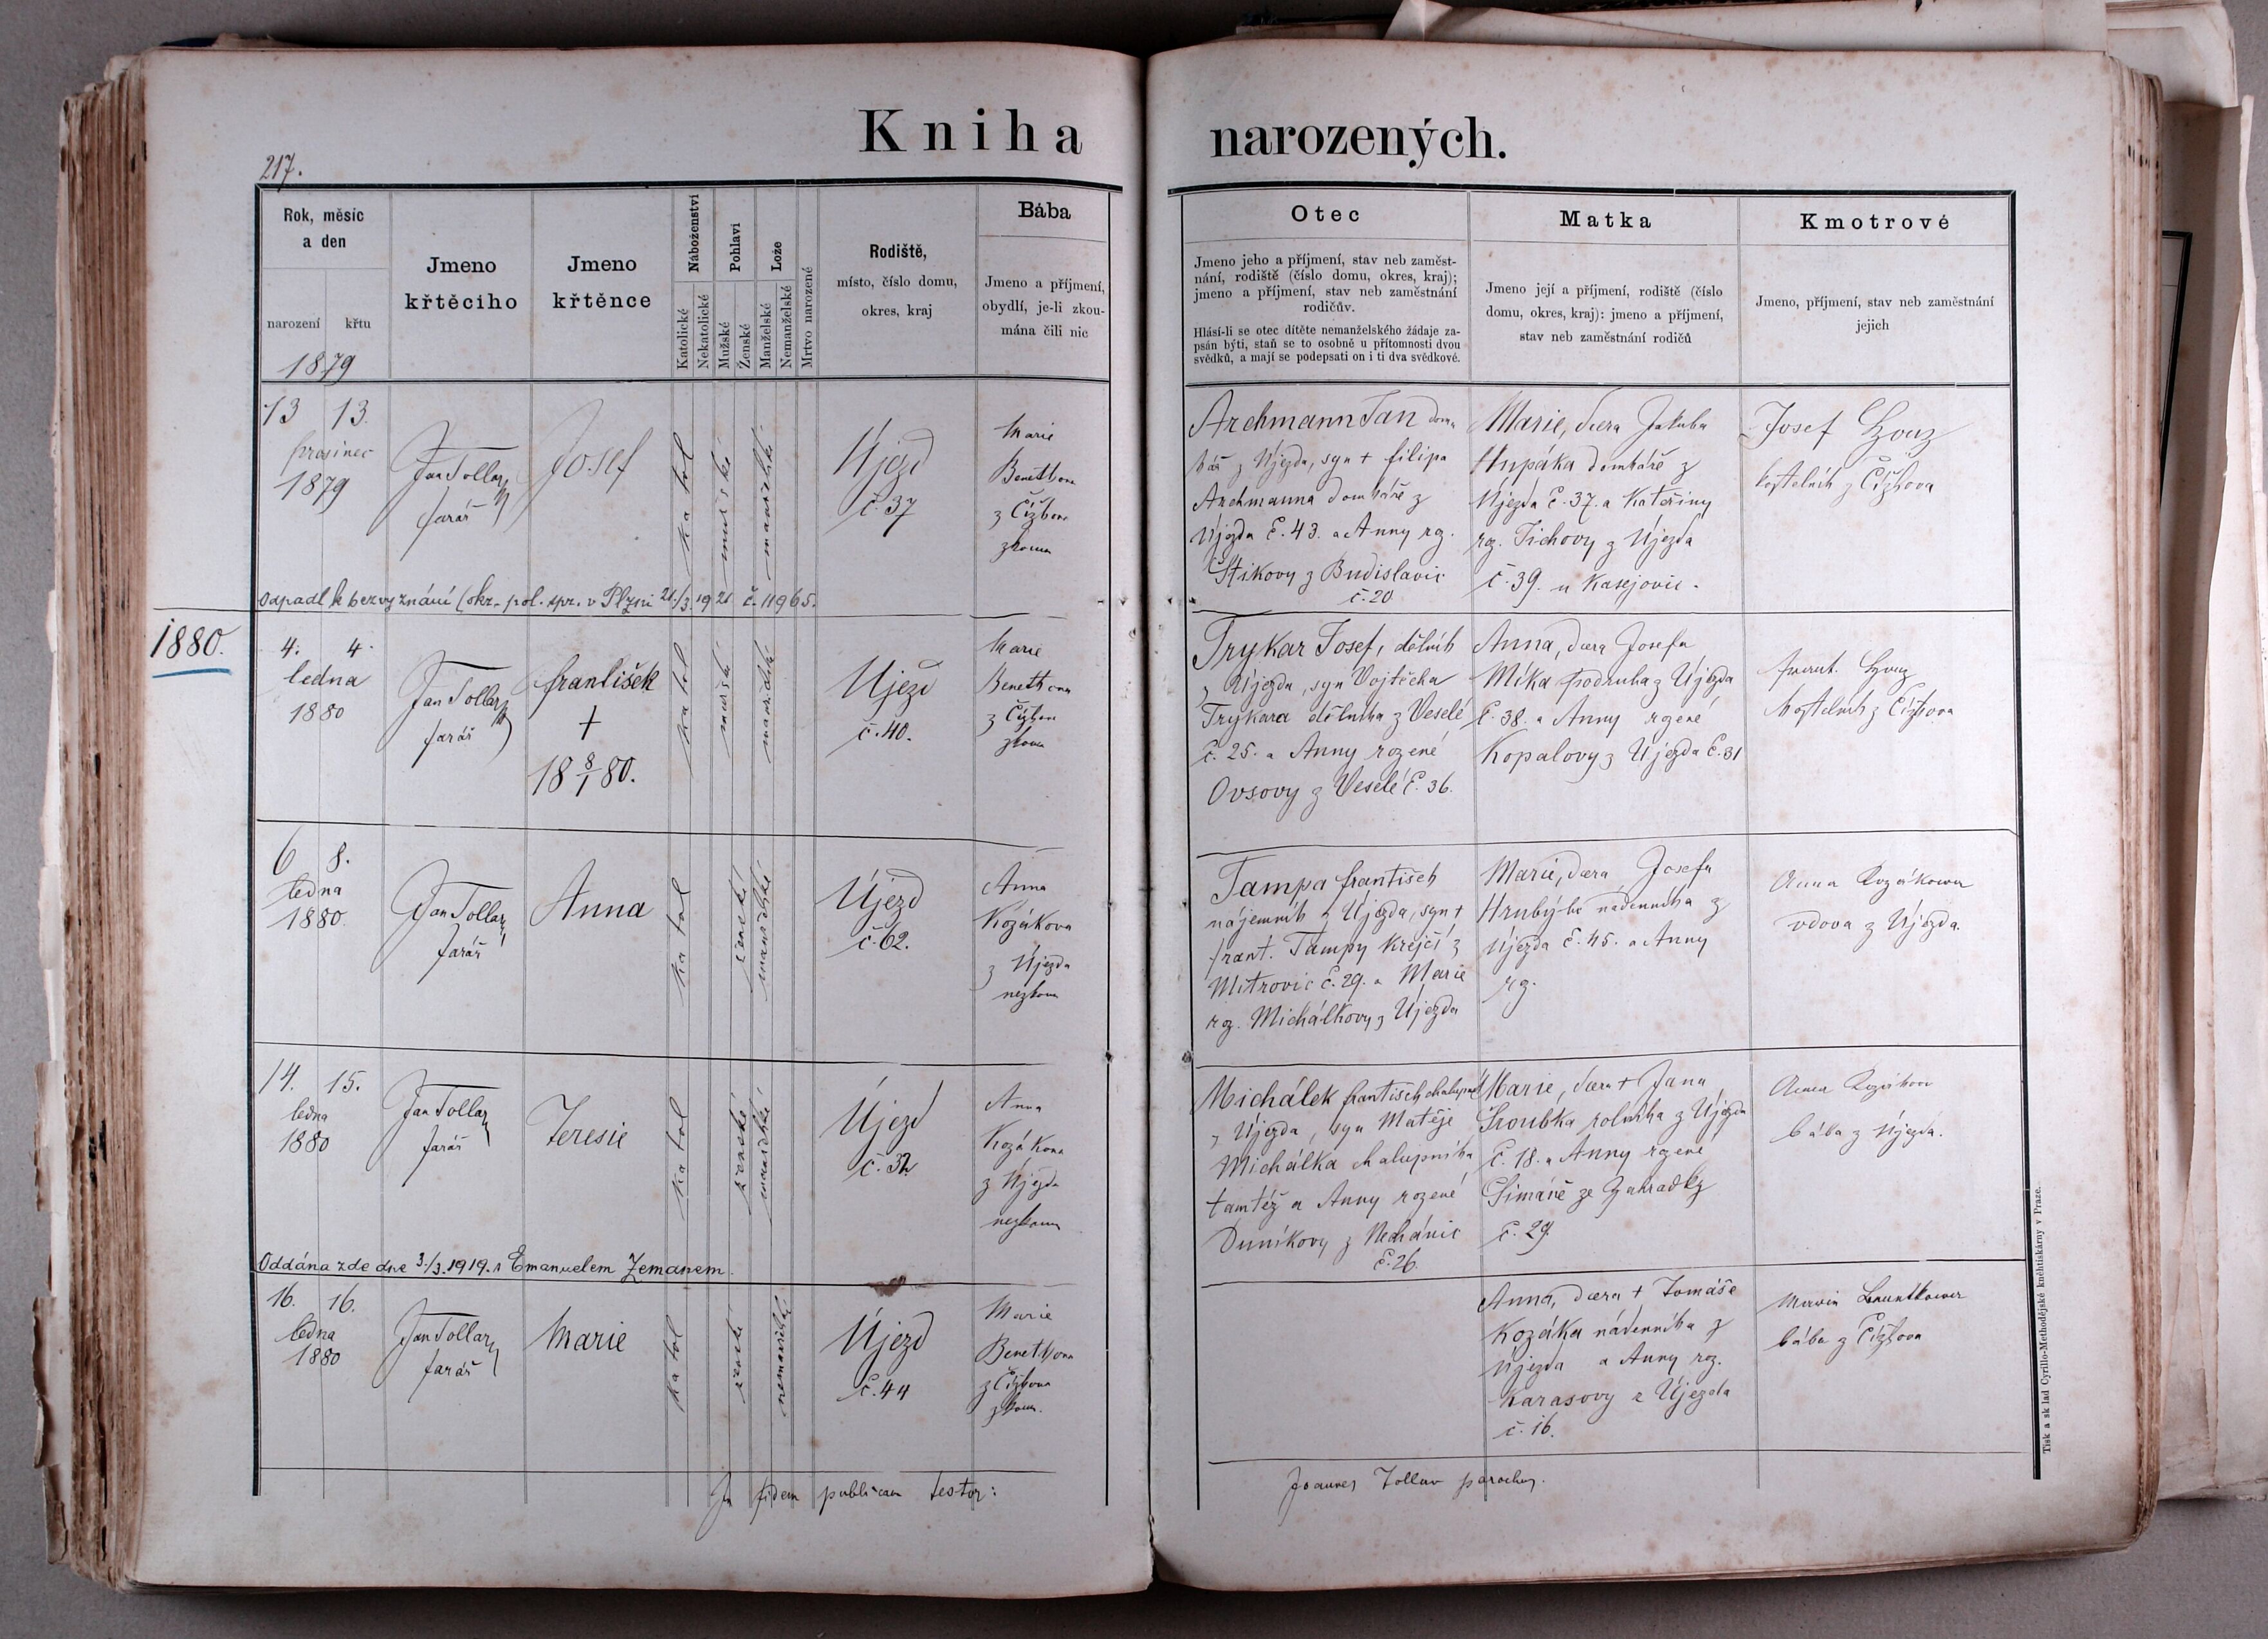 Kniha narozených.
217.
Rok, měsíc
a den
narození křtu
1879
Jmeno
křtěcího
Jmeno
křtěnce
Náboženství
Katolické
Nekatolické
Pohlaví
Mužské
Ženské
Lože
Manželské
Nemanželské
Mrtvo narozené
Rodiště,
místo, číslo domu,
okres, kraj
Bába
Jmeno a příjmení,
obydlí, je-li zkou-
mána čili nic
Otec
Jmeno jeho a příjmení, stav neb zaměst-
nání, rodiště (číslo domu, okres, kraj);
jmeno a příjmení, stav neb zaměstnání
rodičův.
Hlásí-li se otec dítěte nemanželského žádaje za-
psán býti, staň se to osobně u přítomnosti dvou
svědků, a mají se podepsati on i ti dva svědkové.
Matka
Jmeno její a příjmení, rodiště (číslo
domu, okres, kraj): jmeno a příjmení,
stav neb zaměstnání rodičů
Kmotrové
Jmeno, příjmení, stav neb zaměstnání
jejich
13 13.
prosinec
1879
Jan Tollar
farář
Josef
katol
mužské
manželské
Újezd
č. 37
Marie
z Čížkova
zkoum
Archmann Jan dom
kář z Újezda, syn + filipa
Archmanna domkáře z
Újezda č. 43. a Anny rz.
Štikovy z Budislavic
č. 20
Marie, dcera Jakuba
Hupáka domkáře z
Újezda č. 37. a Kateřiny
rz. Tichovy z Újezda
č. 39. u Kasejovic.
Josef
kostelník z Čížkova
Odpadl k bezvyznání (okr. pol. spr. v Plzni 21./3. 1921 č. 11965.
1880.
4. 4.
ledna
1880
Jan Tollar
farář
františek
+
18 8/1 80.
katol
mužské
manželské
Újezd
č. 40.
Marie
z Čížkova
zkoum
Trykar Josef, dělník
z Újezda, syn Vojtěcha
Trykara dělníka z Veselé
č. 25. a Anny rozené
Ovsovy z Veselé č. 36.
Anna, dcera Josefa
Míka podruha z Újezda
č. 38. a Anny rozené
Kopalovy z Újezda č. 31
frant.
kostelník z Čížkova
6 8.
ledna
1880.
Jan Tollar
farář
Anna
katol
ženské
manželské
Újezd
č. 62.
Anna
Kozákova
z Újezda
nezkoum
Tampa františek
nájemník z Újezda, syn +
frant. Tampy krejčí z
Mitrovic č. 29. a Marie
rz. Michálkovy z Újezda
Marie, dcera Josefa
Hrubý-ho nádenníka z
Újezda č. 45. a Anny
rz.
Anna Kozákova
vdova z Újezda.
14. 15.
ledna
1880
Jan Tollar
farář
Teresie
katol
ženské
manželské
Újezd
č. 32
Anna
Kozákova
z Újezda
nezkoum
Michálek františek chalupník
z Újezda, syn Matěje
Michálka chalupníka
tamtéž a Anny rozené
Duníkovy z Nechánic
č. 26.
Marie, dcera + Jana
Sroubka rolníka z Újezda
č. 18. a Anny rozené
Šimáně ze Zahrádky
č. 29.
Anna Kozákova
bába z Újezda.
Oddána zde dne 3./3. 1919. s Emanuelem Zemanem.
16. 16.
ledna
1880
Jan Tollar
farář
Marie
katol
ženské
nemanželské
Újezd
č. 44
Marie
z Čížkova
zkoum.
Anna, dcera + Tomáše
Kozáka nádenníka z
Újezda a Anny roz.
Karasovy z Újezda
č. 16.
bába z Čížkova
In fidem publicam testor: Joannes Tollar parochus.
Tisk a sklad Cyrillo-Methodějské knihtiskárny v Praze.